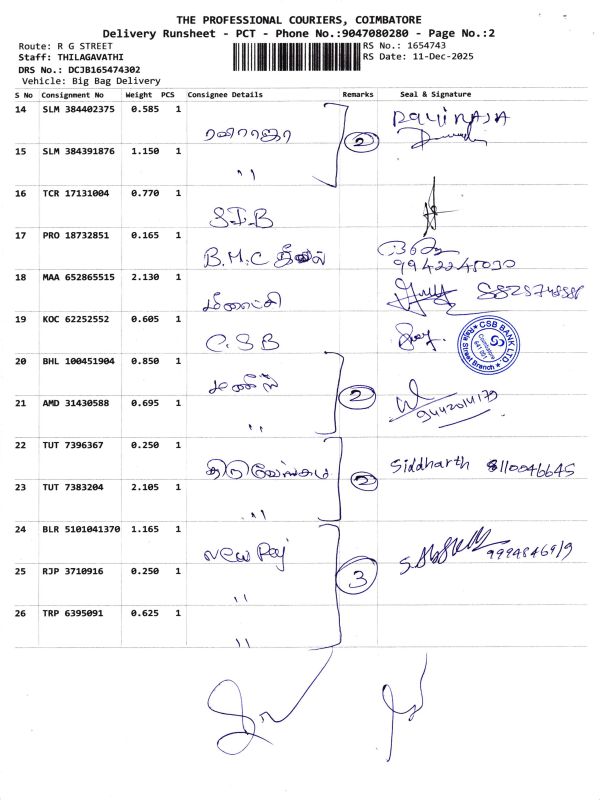 THE PROFESSIONAL COURIERS, COIMBATORE
Delivery Runsheet - PCT - Phone No.:9047080280 - Page No.:2
Route: R G STREET
RS No.: 1654743
Staff: THILAGAVATHI
RS Date: 11-Dec-2025
DRS No.: DCJB165474302
Vehicle: Big Bag Delivery
S No Consignment No Weight PCS Consignee Details Remarks Seal & Signature
14 SLM 384402375 0.585 1
ரவிராஜா 2 RAVIRAJA
15 SLM 384391876 1.150 1
"
16 TCR 17131004 0.770 1
S.I.B
17 PRO 18732851 0.165 1
B.M.C
18 MAA 652865515 2.130 1
மீனாட்சி
19 KOC 62252552 0.605 1
C.S.B
CSB BANK LTD
20 BHL 100451904 0.850 1
2
21 AMD 31430588 0.695 1
" 9442014179
22 TUT 7396367 0.250 1
Siddharth 8110046645
23 TUT 7383204 2.105 1
" 2
24 BLR 5101041370 1.165 1
New Raj
25 RJP 3710916 0.250 1
" 3
26 TRP 6395091 0.625 1
"